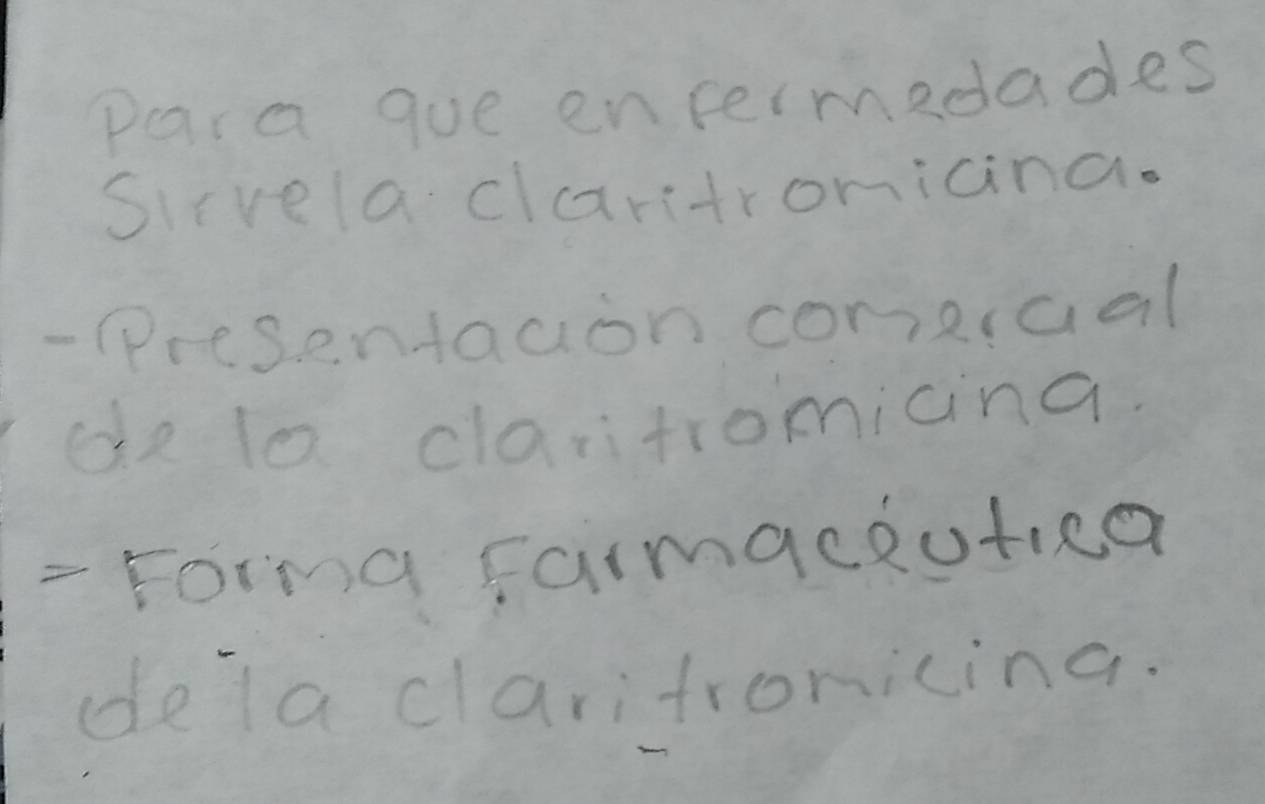 Para que enfermedades
Sirve la claritromicina.
- Presentación comercial
de la claritromicina.
- Forma Farmacéutica
de la claritromicina.